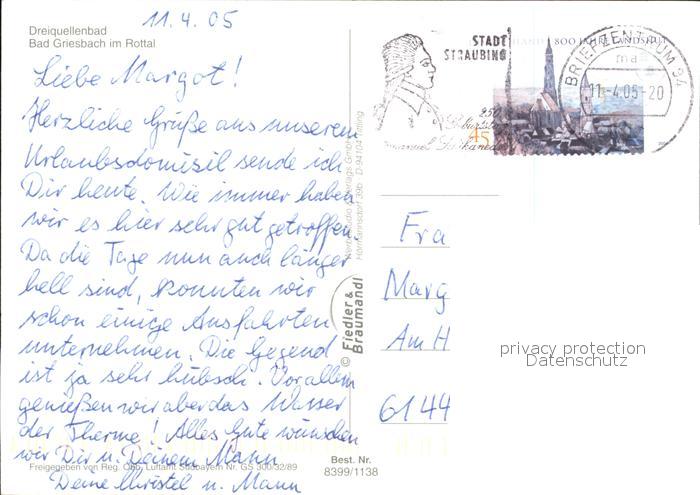 11.4.05
Dreiquellenbad
Bad Griesbach im Rottal
Liebe Margot!
Herzliche Grüße aus unserem
Urlaubsdomizil sende ich
Dir heute. Wie immer haben
wir es hier sehr gut getroffen.
Da die Tage nun auch länger
hell sind, konnten wir
schon einige Ausfahrten
unternehmen. Die Gegend
ist ja sehr hübsch. Vor allem
genießen wir aber das Wasser
der Therme! Alles Gute wünschen
wir Dir u. Deinem Mann
Deine Christel u. Mann
Freigegeben von Reg. Obb. Luftamt Südbayern Nr. GS 300/32/89
Verlags GmbH
Hörmannsdorf 39b D-94104
© Fiedler & Braumandl
Best. Nr.
8399/1138
STADT
STRAUBING
250.
Geburtstag
Emanuel Schikaneder
800 JAHRE LANDSHUT
45
BRIEFZENTRUM 94
ma
11.-4.05-20
Fra
Marg
Am H
6144
privacy protection
Datenschutz